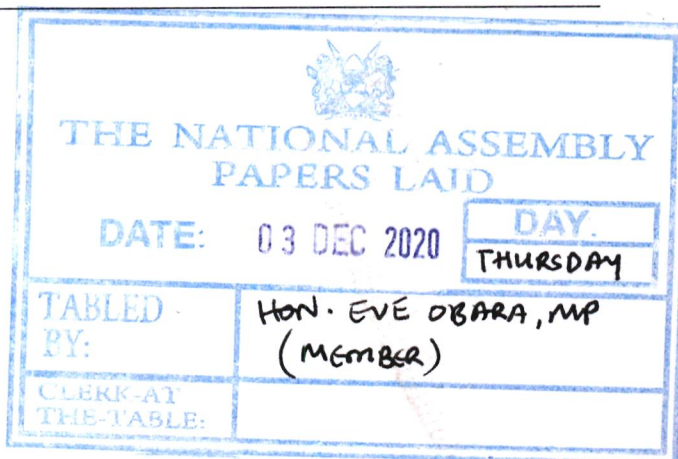 THE NATIONAL ASSEMBLY
PAPERS LAID
DATE: 03 DEC 2020
DAY.
THURSDAY
TABLED BY:
HON. EVE OBARA, MP
(MEMBER)
CLERK-AT
THE-TABLE: